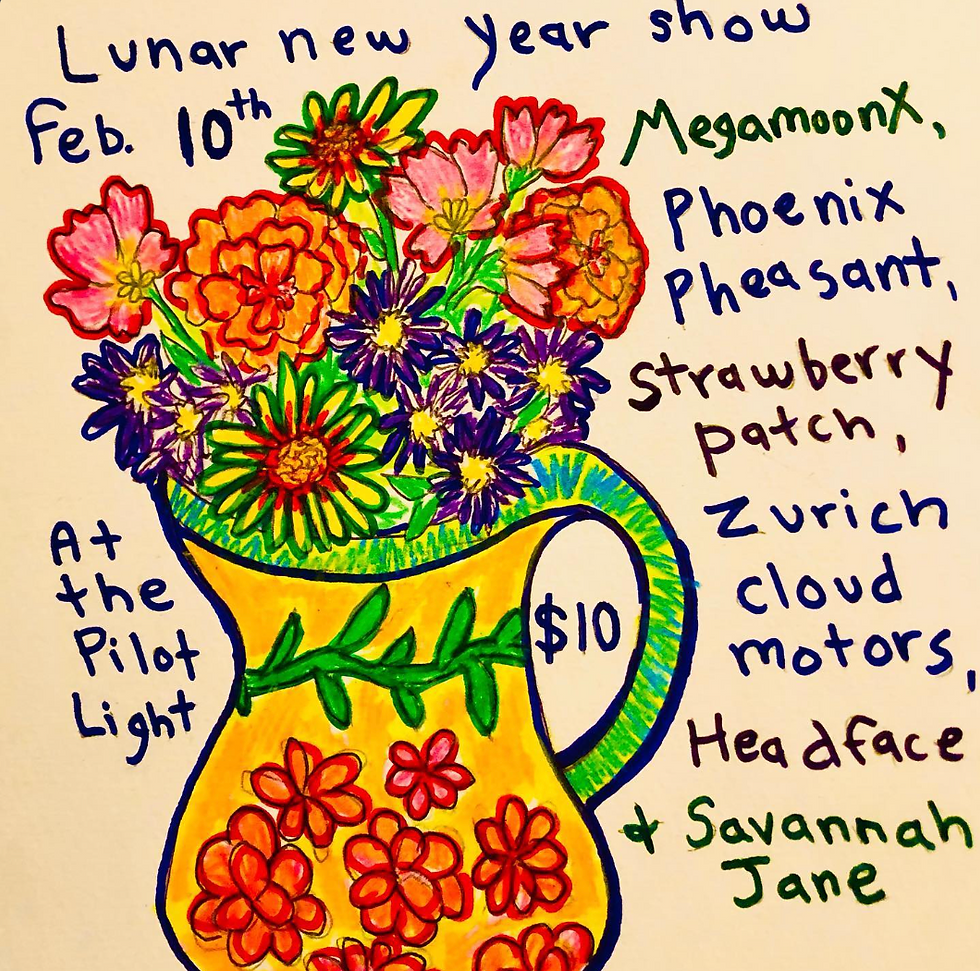 Lunar new year show
Feb. 10th
MegamoonX,
Phoenix
Pheasant,
Strawberry
patch,
Zurich
cloud
motors,
Headface
& Savannah
Jane
At
the
Pilot
Light
$10